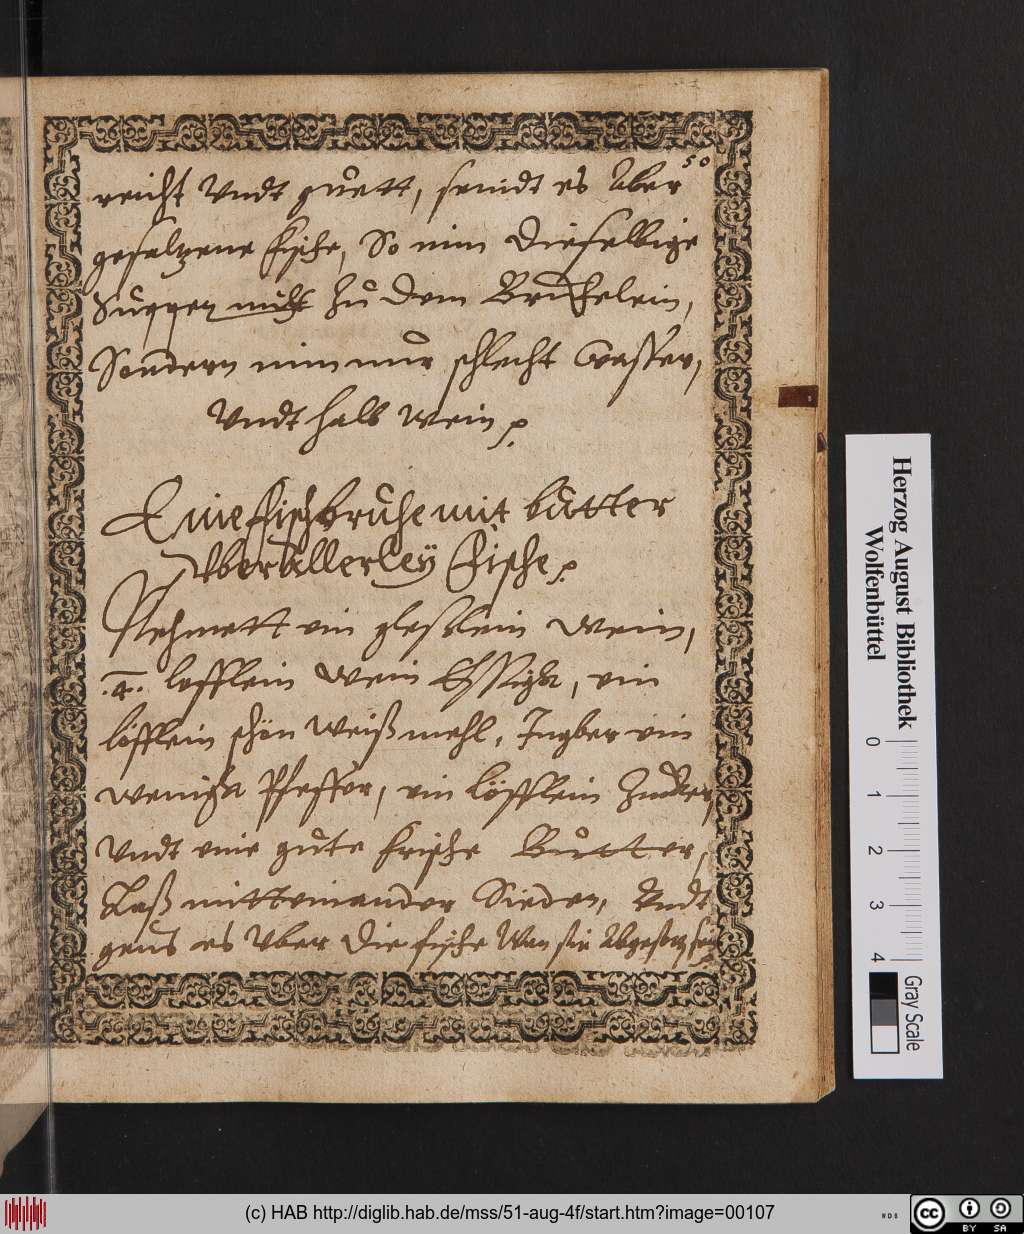 50
reicht Vndt guett, seindt es Aber
gesaltzene fische, So nim dieselbige
Suppen nicht zu dem Brühelein,
Sondern nim nur schlecht Wasser,
Vndt halb wein
Eine fischbruhe mit butter
Vber Allerley fische
Nehmett ein gleßlein wein,
.4. lefflein wein Essigk, ein
löfflein schön weiß mehl, Ingber ein
wenigk Pfeffer, ein löfflein Zucker,
Vndt eine gute frische Butter,
Laß mitteinander Sieden, Vndt
geus es Vber die fische Wan sie Abgesotten sein
Herzog August Bibliothek
Wolfenbüttel
0 1 2 3 4
Gray Scale
(c) HAB http://diglib.hab.de/mss/51-aug-4f/start.htm?image=00107
WDB
cc BY SA